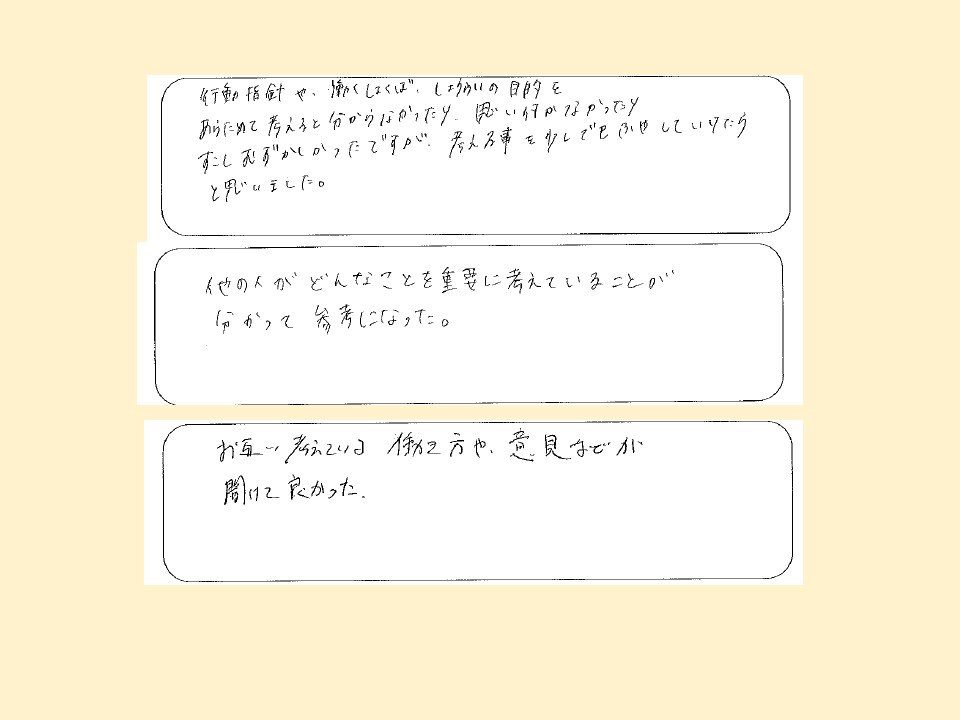 行動指針や、働くしょくば、しょうらいの目的を
あらためて考えると分からなかったり、思い付かなかったり
すこしむずかしかったですが、考える事を少しでもふやしていけたら
と思いました。
他の人がどんなことを重要に考えていることが
分かって参考になった。
お互い考えている働き方や、意見などが
聞けて良かった。